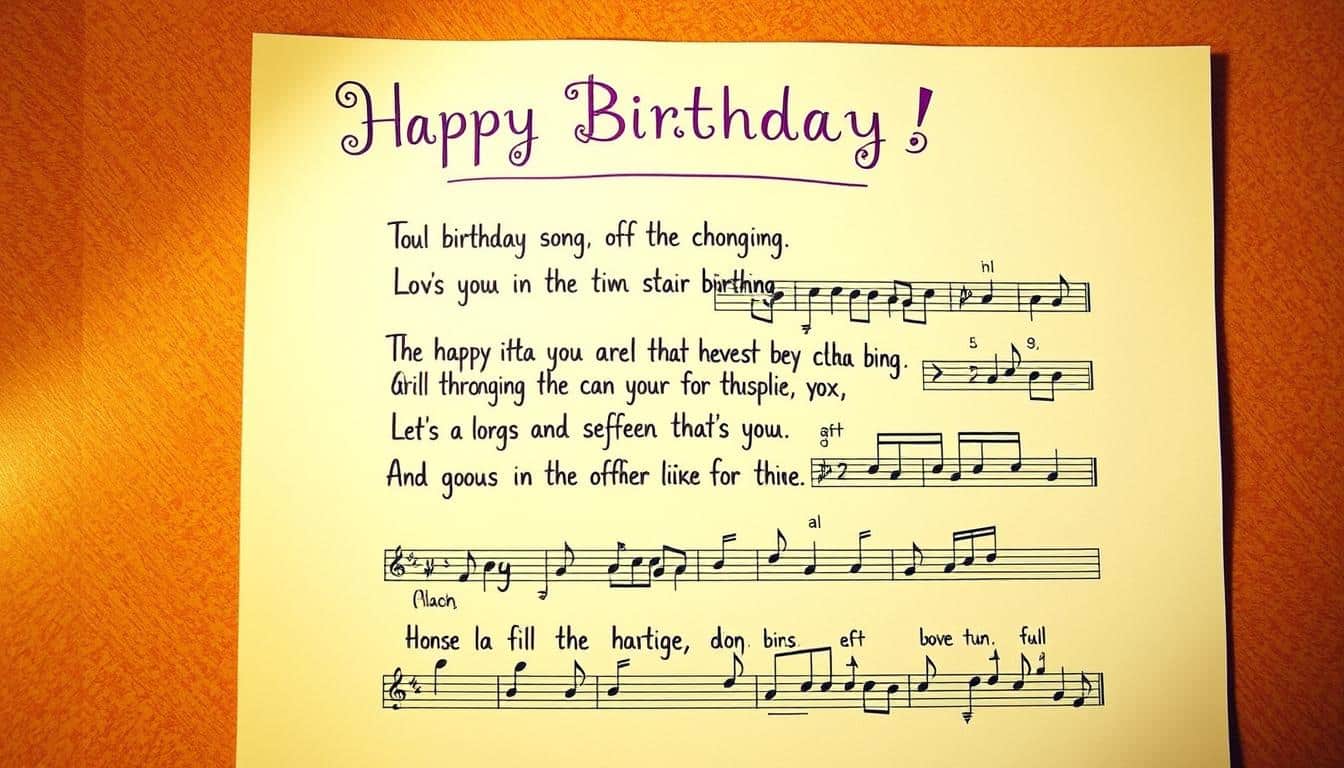 Happy Birthday!
Toul birthday song, off the chonging.
Lov's you in the tim stair birthing
hl
The happy itta you arel that hevest bey ctha bing.
5 9.
Grill thronging the can your for thusplie, yox,
Let's a lorgs and seffeen that's you.
And goous in the offher liike for thiie.
al
Honse la fill the hartige, don. bins. eft bove tun. full